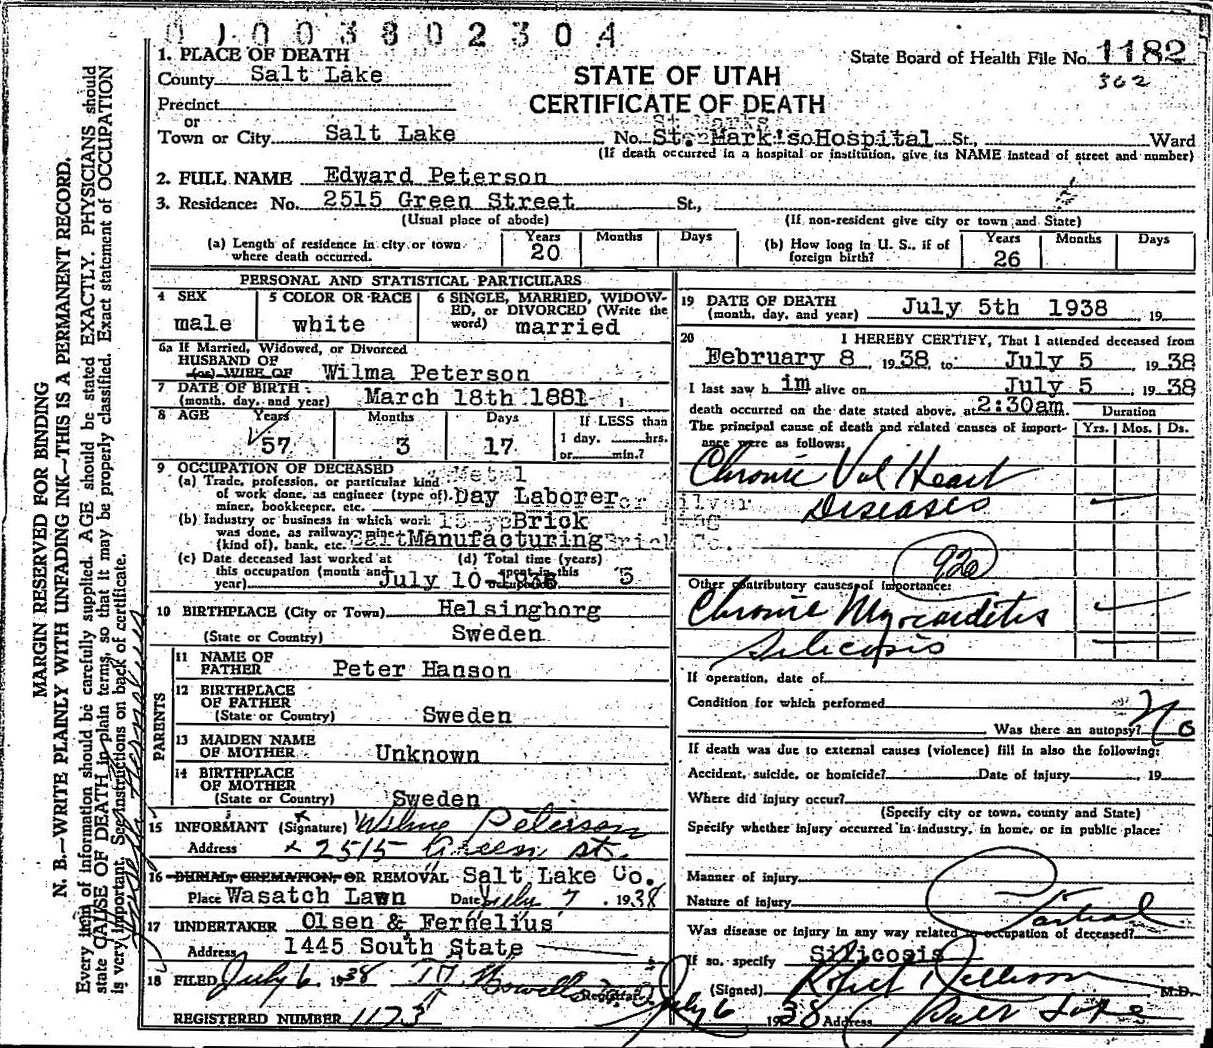 0 1 0 0 3 8 0 2 3 0 4
MARGIN RESERVED FOR BINDING
N. B.—WRITE PLAINLY WITH UNFADING INK—THIS IS A PERMANENT RECORD.
Every item of information should be carefully supplied. AGE should be stated EXACTLY. PHYSICIANS should
state CAUSE OF DEATH in plain terms, so that it may be properly classified. Exact statement of OCCUPATION
is very important. See instructions on back of certificate.
State Board of Health File No. 1182
362
STATE OF UTAH
CERTIFICATE OF DEATH
1. PLACE OF DEATH
County Salt Lake
Precinct
or
Town or City Salt Lake No. St. Mark's Hospital St., Ward
(If death occurred in a hospital or institution, give its NAME instead of street and number)
2. FULL NAME Edward Peterson
3. Residence: No. 2515 Green Street St.,
(Usual place of abode) (If non-resident give city or town and State)
(a) Length of residence in city or town where death occurred. Years 20 Months Days
(b) How long in U. S., if of foreign birth? Years 26 Months Days
PERSONAL AND STATISTICAL PARTICULARS
4 SEX male
5 COLOR OR RACE white
6 SINGLE, MARRIED, WIDOWED, or DIVORCED (Write the word) married
6a If Married, Widowed, or Divorced
HUSBAND OF
(or) WIFE OF Wilma Peterson
7 DATE OF BIRTH
(month, day, and year) March 18th 1881
8 AGE Years 57 Months 3 Days 17 If LESS than
1 day, hrs.
or min.?
9 OCCUPATION OF DECEASED
(a) Trade, profession, or particular kind
of work done, as engineer (type of),
miner, bookkeeper, etc. Day Laborer
(b) Industry or business in which work
was done, as railway, mine
(kind of), bank, etc. Brick Manufacturing
(c) Date deceased last worked at
this occupation (month and
year) July 10-1936
(d) Total time (years)
spent in this
occupation 5
10 BIRTHPLACE (City or Town) Helsingborg
(State or Country) Sweden
PARENTS
11 NAME OF
FATHER Peter Hanson
12 BIRTHPLACE
OF FATHER
(State or Country) Sweden
13 MAIDEN NAME
OF MOTHER Unknown
14 BIRTHPLACE
OF MOTHER
(State or Country) Sweden
15 INFORMANT (Signature) Wilma Peterson
Address x 2515 Green St.
16 BURIAL, CREMATION, OR REMOVAL Salt Lake Co.
Place Wasatch Lawn Date July 7, 1938
17 UNDERTAKER Olsen & Fernelius
Address 1445 South State
18 FILED July 6 1938 Howells Registrar
REGISTERED NUMBER 1173
19 DATE OF DEATH
(month, day, and year) July 5th 1938, 19
20 I HEREBY CERTIFY, That I attended deceased from
February 8, 1938, to July 5 1938
I last saw him alive on July 5, 1938
death occurred on the date stated above, at 2:30am.
Duration
Yrs. Mos. Ds.
The principal cause of death and related causes of importance were as follows:
Chronic Val Heart
Diseases
92a
Other contributory causes of importance:
Chronic Myocarditis
Silicosis
If operation, date of
Condition for which performed
Was there an autopsy? No
If death was due to external causes (violence) fill in also the following:
Accident, suicide, or homicide? Date of injury , 19
Where did injury occur?
(Specify city or town, county and State)
Specify whether injury occurred in industry, in home, or in public place:
Manner of injury
Nature of injury
Partial
Was disease or injury in any way related to occupation of deceased?
If so, specify Silicosis
(Signed) Robert M.D.
July 6 1938 Address Salt Lake